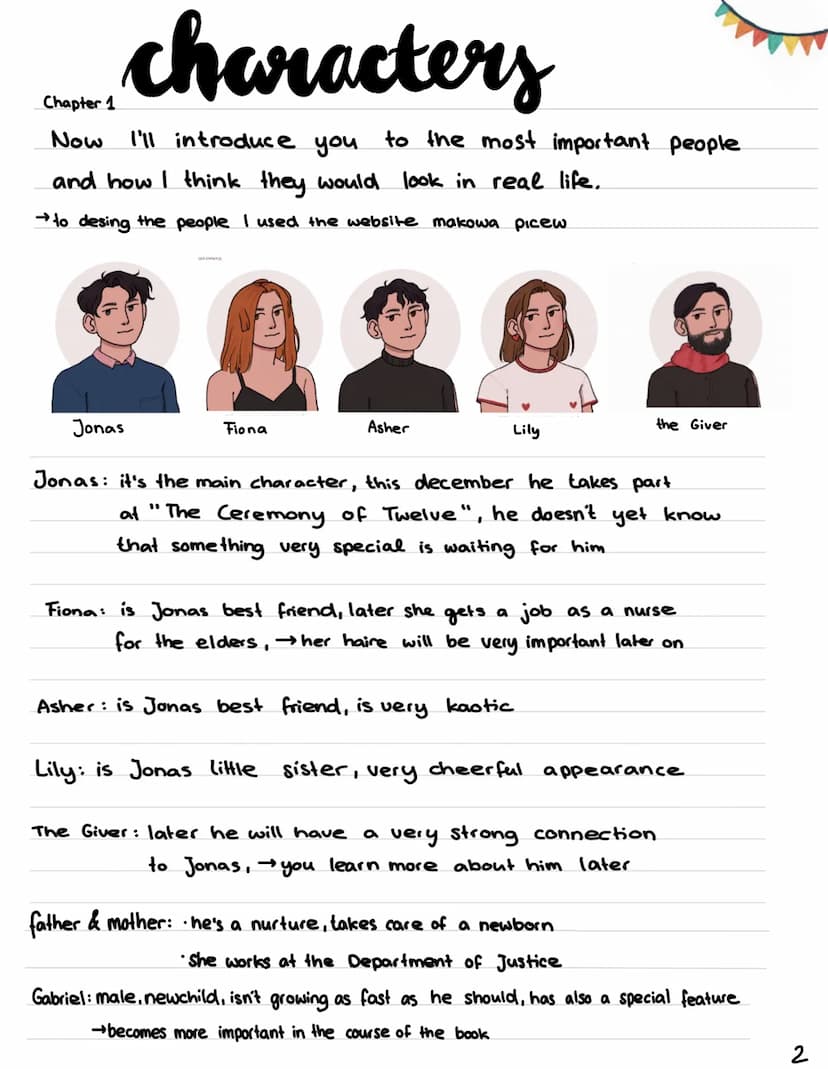 characters
Chapter 1
Now I'll introduce you to the most important people
and how I think they would look in real life.
→to desing the people I used the website makowa picew
Jonas
Fiona
Asher
Lily
the Giver
Jonas: it's the main character, this december he takes part
at "The Ceremony of Twelve", he doesn't yet know
that something very special is waiting for him
Fiona: is Jonas best friend, later she gets a job as a nurse
for the elders, →her haire will be very important later on
Asher: is Jonas best friend, is very kaotic
Lily: is Jonas little sister, very cheerful appearance
The Giver: later he will have a very strong connection
to Jonas, →you learn more about him later
father & mother: ·he's a nurture, takes care of a newborn
·She works at the Department of Justice
Gabriel: male, newchild, isn't growing as fast as he should, has also a special feature
→becomes more important in the course of the book
2